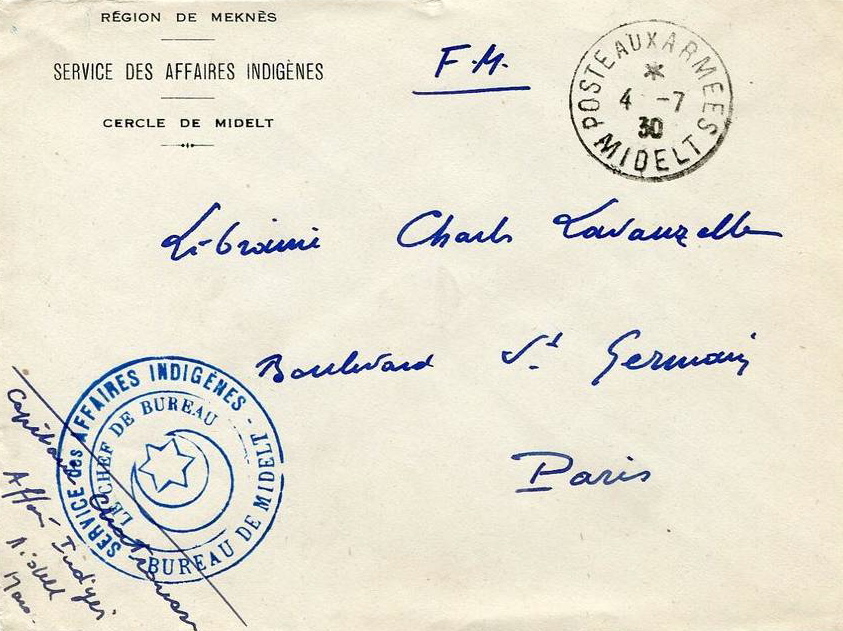 RÉGION DE MEKNÈS
SERVICE DES AFFAIRES INDIGÈNES
CERCLE DE MIDELT
F.M.
POSTE AUX ARMEES
4 -7
30
MIDELT
Librairie Charles Lavauzelle
Boulevard St Germain
Paris
SERVICE des AFFAIRES INDIGÈNES - BUREAU DE MIDELT
LE CHEF DE BUREAU
Capitaine
Affaires Indigènes
Midelt
Maroc